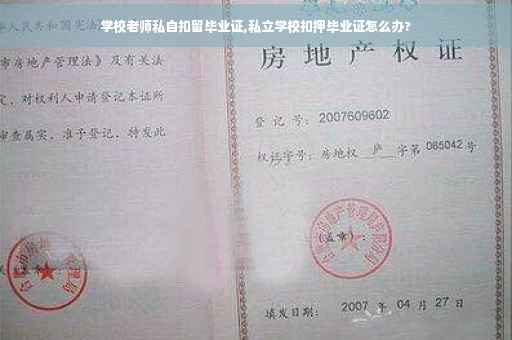 学校老师私自扣留毕业证,私立学校扣押毕业证怎么办?
人民共和国宪法
市房地产管理法》及有关法
定，对权利人申请登记本证所
审查属实，准予登记，特发此
房地产权证
登记号：2007609602
权证字号：房地权 庐 字第 085042 号
(盖章)：
填发日期：2007 年 04 月 27 日